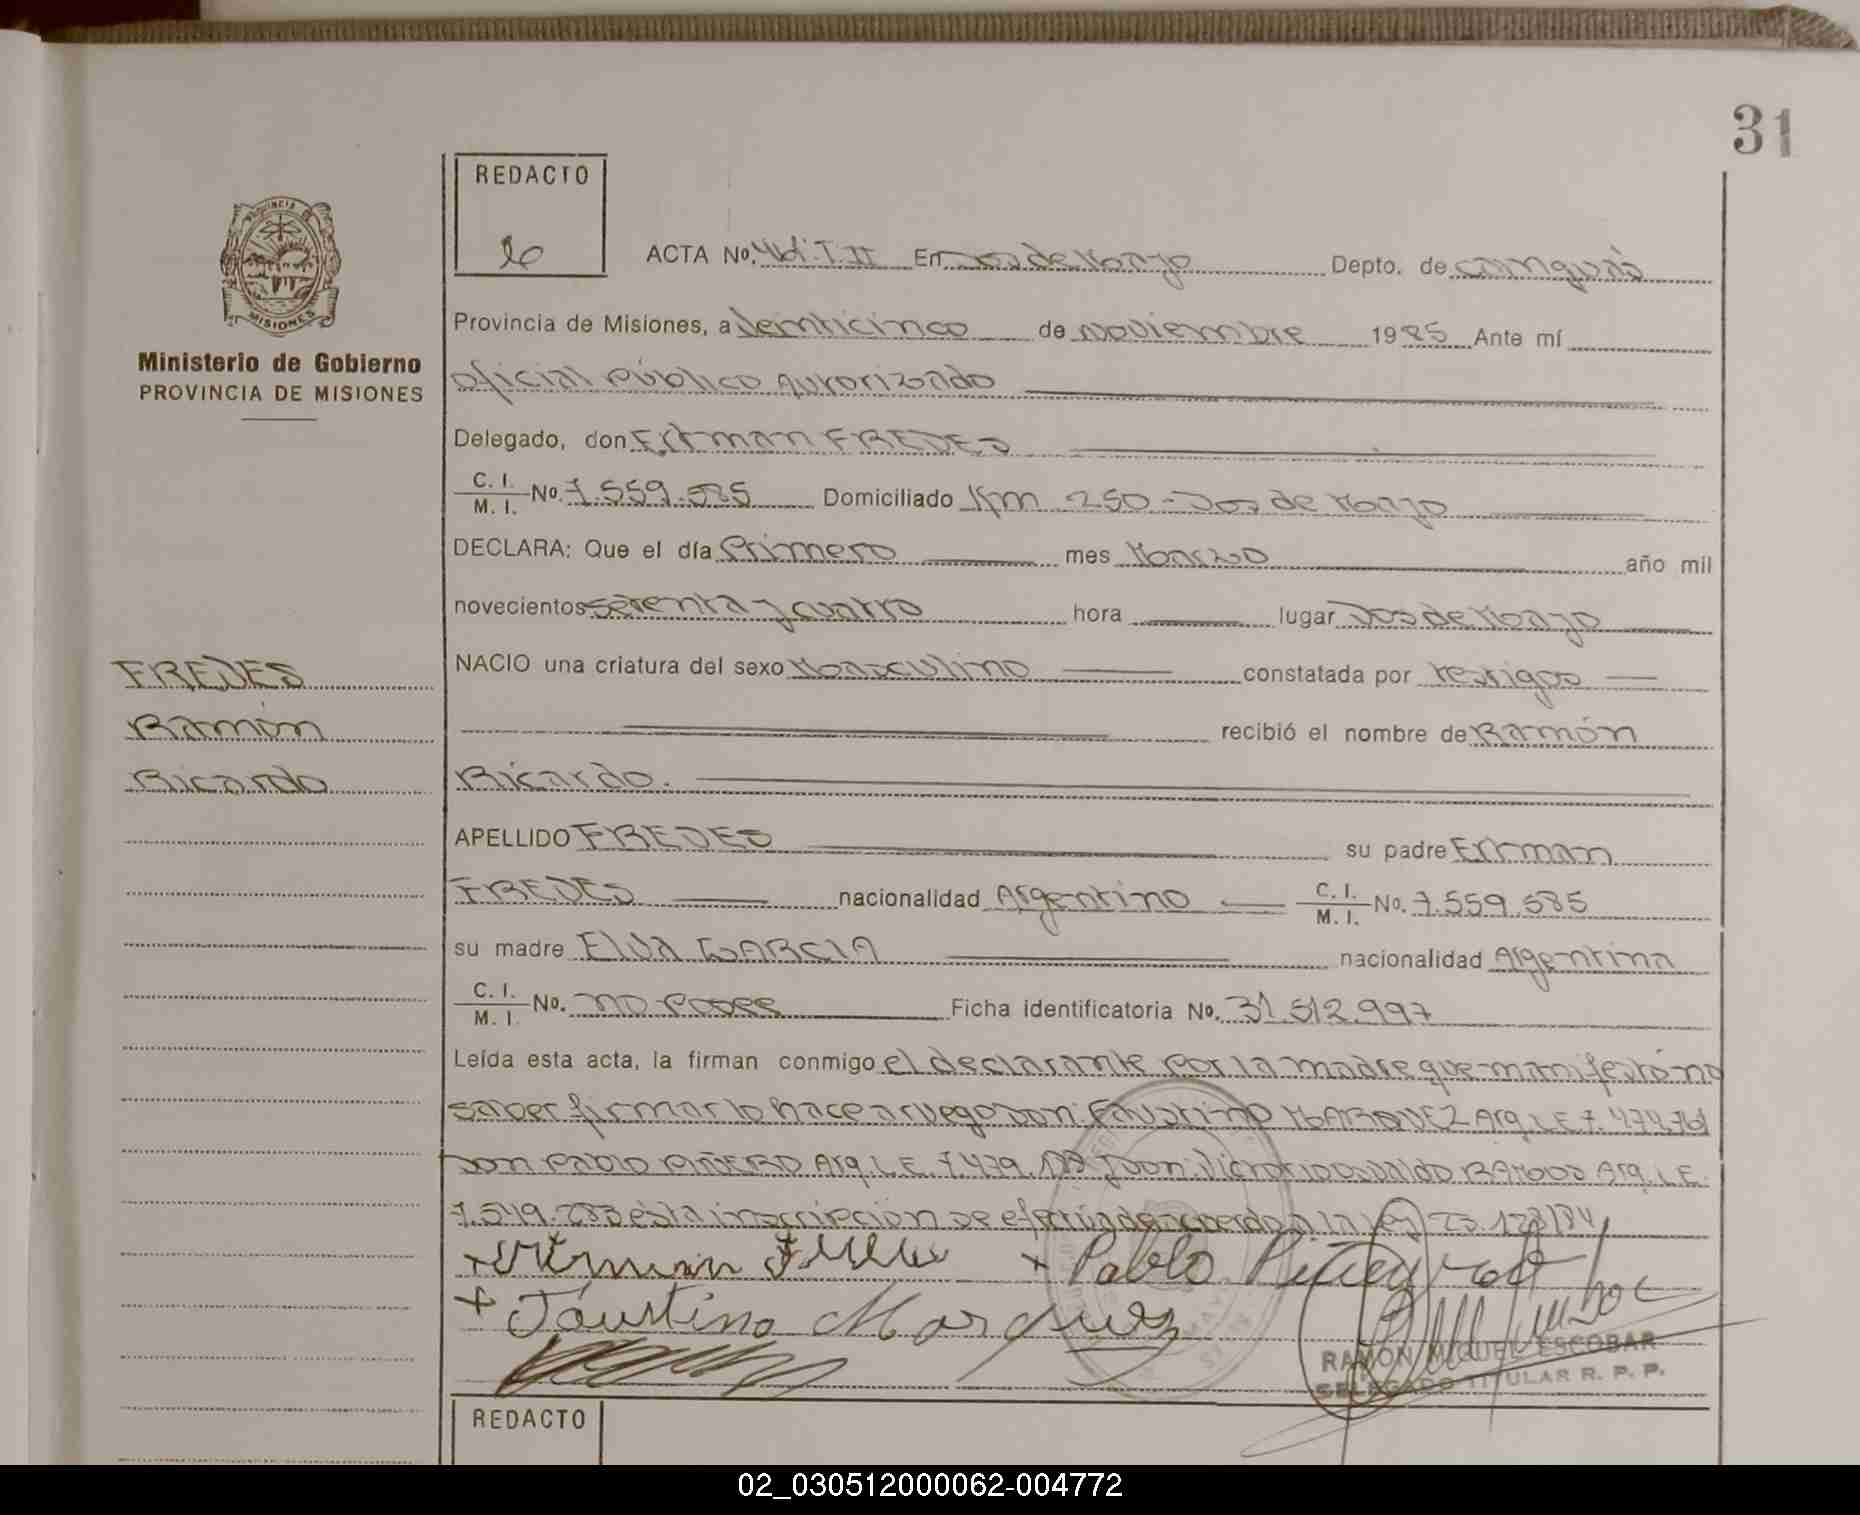 31
REDACTO
PROVINCIA DE
MISIONES
Ministerio de Gobierno
PROVINCIA DE MISIONES
ACTA No. 461. T. II En Dos de Mayo Depto. de Cainguás
Provincia de Misiones, a Veinticinco de Noviembre 1985 Ante mí
oficial público autorizado
Delegado, don Erman FREDES
C. I. M. I. No. 7.559.585 Domiciliado Km 250 - Dos de Mayo
DECLARA: Que el día Primero mes Marzo año mil
novecientos setenta y cuatro hora lugar Dos de Mayo
FREDES
NACIO una criatura del sexo Masculino constatada por testigos
Ramón
recibió el nombre de Ramón
Ricardo
Ricardo.
APELLIDO FREDES su padre Erman
FREDES nacionalidad Argentino C. I. M. I. No. 7.559.585
su madre Elva GARCIA nacionalidad Argentina
C. I. M. I. No. no posee Ficha identificatoria No. 31.512.997
Leída esta acta, la firman conmigo el declarante por la madre que manifestó no
saber firmar lo hace a ruego don: Faustino MARQUEZ Arg. L.E. 7.474.761
Don Pablo PIÑERO Arg. L.E. 7.439. y don: Victorio Osvaldo RAMOS Arg. L.E.
7.549.283 ésta inscripción se efectúa de acuerdo a la ley 23.128/84
+ Erman + Pablo
+ Faustino Marquez
RAMON MIGUEL ESCOBAR
DELEGADO TITULAR R. P. P.
REDACTO
02_030512000062-004772